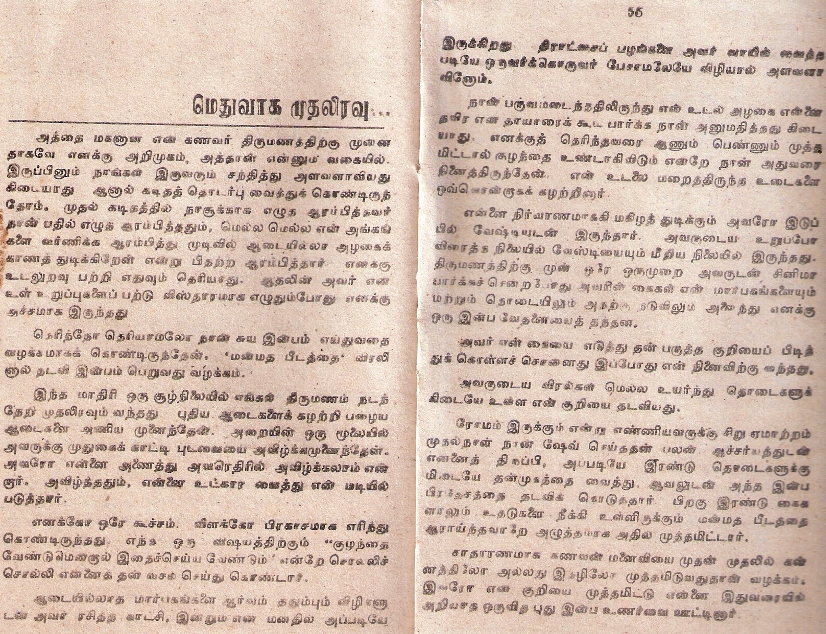 மெதுவாக முதலிரவு...
அத்தை மகனான என் கணவர் திருமணத்திற்கு முன்ன
தாகவே எனக்கு அறிமுகம், அத்தான் என்னும் வகையில்.
இருப்பினும் நாங்கள் இருவரும் சந்தித்து அளவளாவியது
கிடையாது ஆனால் கடிதத் தொடர்பு வைத்துக் கொண்டிருந்
தோம். முதல் கடிதத்தில் நாசூக்காக எழுத ஆரம்பித்தவர்
நான் பதில் எழுத ஆரம்பித்ததும், மெல்ல மெல்ல என் அங்கங்
களை வர்ணிக்க ஆரம்பித்து முடிவில் ஆடையில்லா அழகைக்
காணத் துடிக்கிறேன் என்று பிதற்ற ஆரம்பித்தார் எனக்கு
உடலுறவு பற்றி எதுவும் தெரியாது. ஆதலின் அவர் என்
உள் உறுப்புகளைப் பற்றி விஸ்தாரமாக எழுதும்போது எனக்கு
கூச்சமாக இருந்தது
தெரிந்தோ தெரியாமலோ நான் சுய இன்பம் எய்துவதை
வழக்கமாகக் கொண்டிருந்தேன். 'மன்மத பீடத்தை' விரலி
னால் தடவி இன்பம் பெறுவது வழக்கம்.
இந்த மாதிரி ஒரு சூழ்நிலையில் எங்கள் திருமணம் நடந்
தேறி முதலிரவும் வந்தது புதிய ஆடைகளைக் கழற்றி பழைய
ஆடைகளை அணிய முனைந்தேன். அறையின் ஒரு மூலையில்
அவருக்கு முதுகைக் காட்டி புடவையை அவிழ்க்கமுனைந்தேன்.
அவரோ என்னை அணைத்து அவரெதிரில் அவிழ்க்கலாம் என்
றார். அவிழ்த்ததும், என்னை உட்கார வைத்து என் மடியில்
படுத்தார்.
எனக்கோ ஒரே கூச்சம். விளக்கோ பிரகாசமாக எரிந்து
கொண்டிருந்தது. எந்த ஒரு விஷயத்திற்கும் "குழந்தை
வேண்டுமென்றால் இதைச்செய்ய வேண்டும்" என்றே சொல்லிச்
சொல்லி என்னைத் தன் வசம் செய்து கொண்டார்.
ஆடையில்லாத மார்பகங்களை ஆர்வம் ததும்பும் விழிகளு
டன் அவர் ரசித்த காட்சி, இன்றும் என் மனதில் அப்படியே
56
இருக்கிறது திராட்சைப் பழங்களை அவர் வாயில் வைத்த
படியே ஒருவர்க்கொருவர் பேசாமலேயே விழியால் அளவளா
வினோம்.
நான் பருவமடைந்ததிலிருந்து என் உடல் அழகை என்னை
தவிர என் தாயாரைக் கூட பார்க்க நான் அனுமதித்தது கிடை
யாது. எனக்குத் தெரிந்தவரை ஆணும் பெண்ணும் முத்த
மிட்டால் குழந்தை உண்டாகிவிடும் என்றே நான் அதுவரை
நினைத்திருந்தேன். என் உடலை மறைத்திருந்த உடைகளை
ஒவ்வொன்றாகக் கழற்றினார்
என்னை நிர்வாணமாக்கி மகிழத் துடிக்கும் அவரோ இடுப்
பில் வேஷ்டியுடன் இருந்தார். அவருடைய உறுப்போ
விரைத்த நிலையில் வேஸ்டியையும் மீறிய நிலையில் இருந்தது.
திருமணத்திற்கு முன் ஒரே ஒருமுறை அவருடன் சினிமா
பார்க்கச் சென்றபோது அவரின் கைகள் என் மார்பகங்களையும்
மற்றும் தொடையிலும் அதற்கு நடுவிலும் அலைந்து எனக்கு
ஒரு இன்ப வேதனையைத் தந்தன.
அவர் என் கையை எடுத்து தன் பருத்த குறியைப் பிடித்
துக் கொள்ளச் சொன்னது இப்போது என் நினைவிற்கு வந்தது.
அவருடைய விரல்கள் மெல்ல உயர்ந்து தொடைகளுக்
கிடையே உள்ள என் குறியை தடவியது.
ரோமம் இருக்கும் என்று எண்ணியவருக்கு சிறு ஏமாற்றம்
முதல்நாள் நான் ஷேவ் செய்ததன் பலன். ஆச்சர்யத்துடன்
என்னைத் திருப்பி, அப்படியே இரண்டு தொடைகளுக்கு
மிடையே தன்முகத்தை வைத்து, ஆவலுடன் அந்த இன்ப
பிரதேசத்தை தடவிக் கொடுத்தார். பிறகு இரண்டு கைக
ளாலும் உதடுகளை நீக்கி உள்ளிருக்கும் மன்மத பீடத்தை
ஆராய்ந்தவாறே அழுத்தமாக அதில் முத்தமிட்டார்.
சாதாரணமாக கணவன் மனைவியை முதன் முதலில் கன்
னத்திலோ அல்லது இதழிலோ முத்தமிடுவதுதான் வழக்கம்.
இவரோ என் குறியை முத்தமிட்டு என்னை இதுவரையில்
அறியாத ஒருவித புது இன்ப உணர்வை ஊட்டினார்.